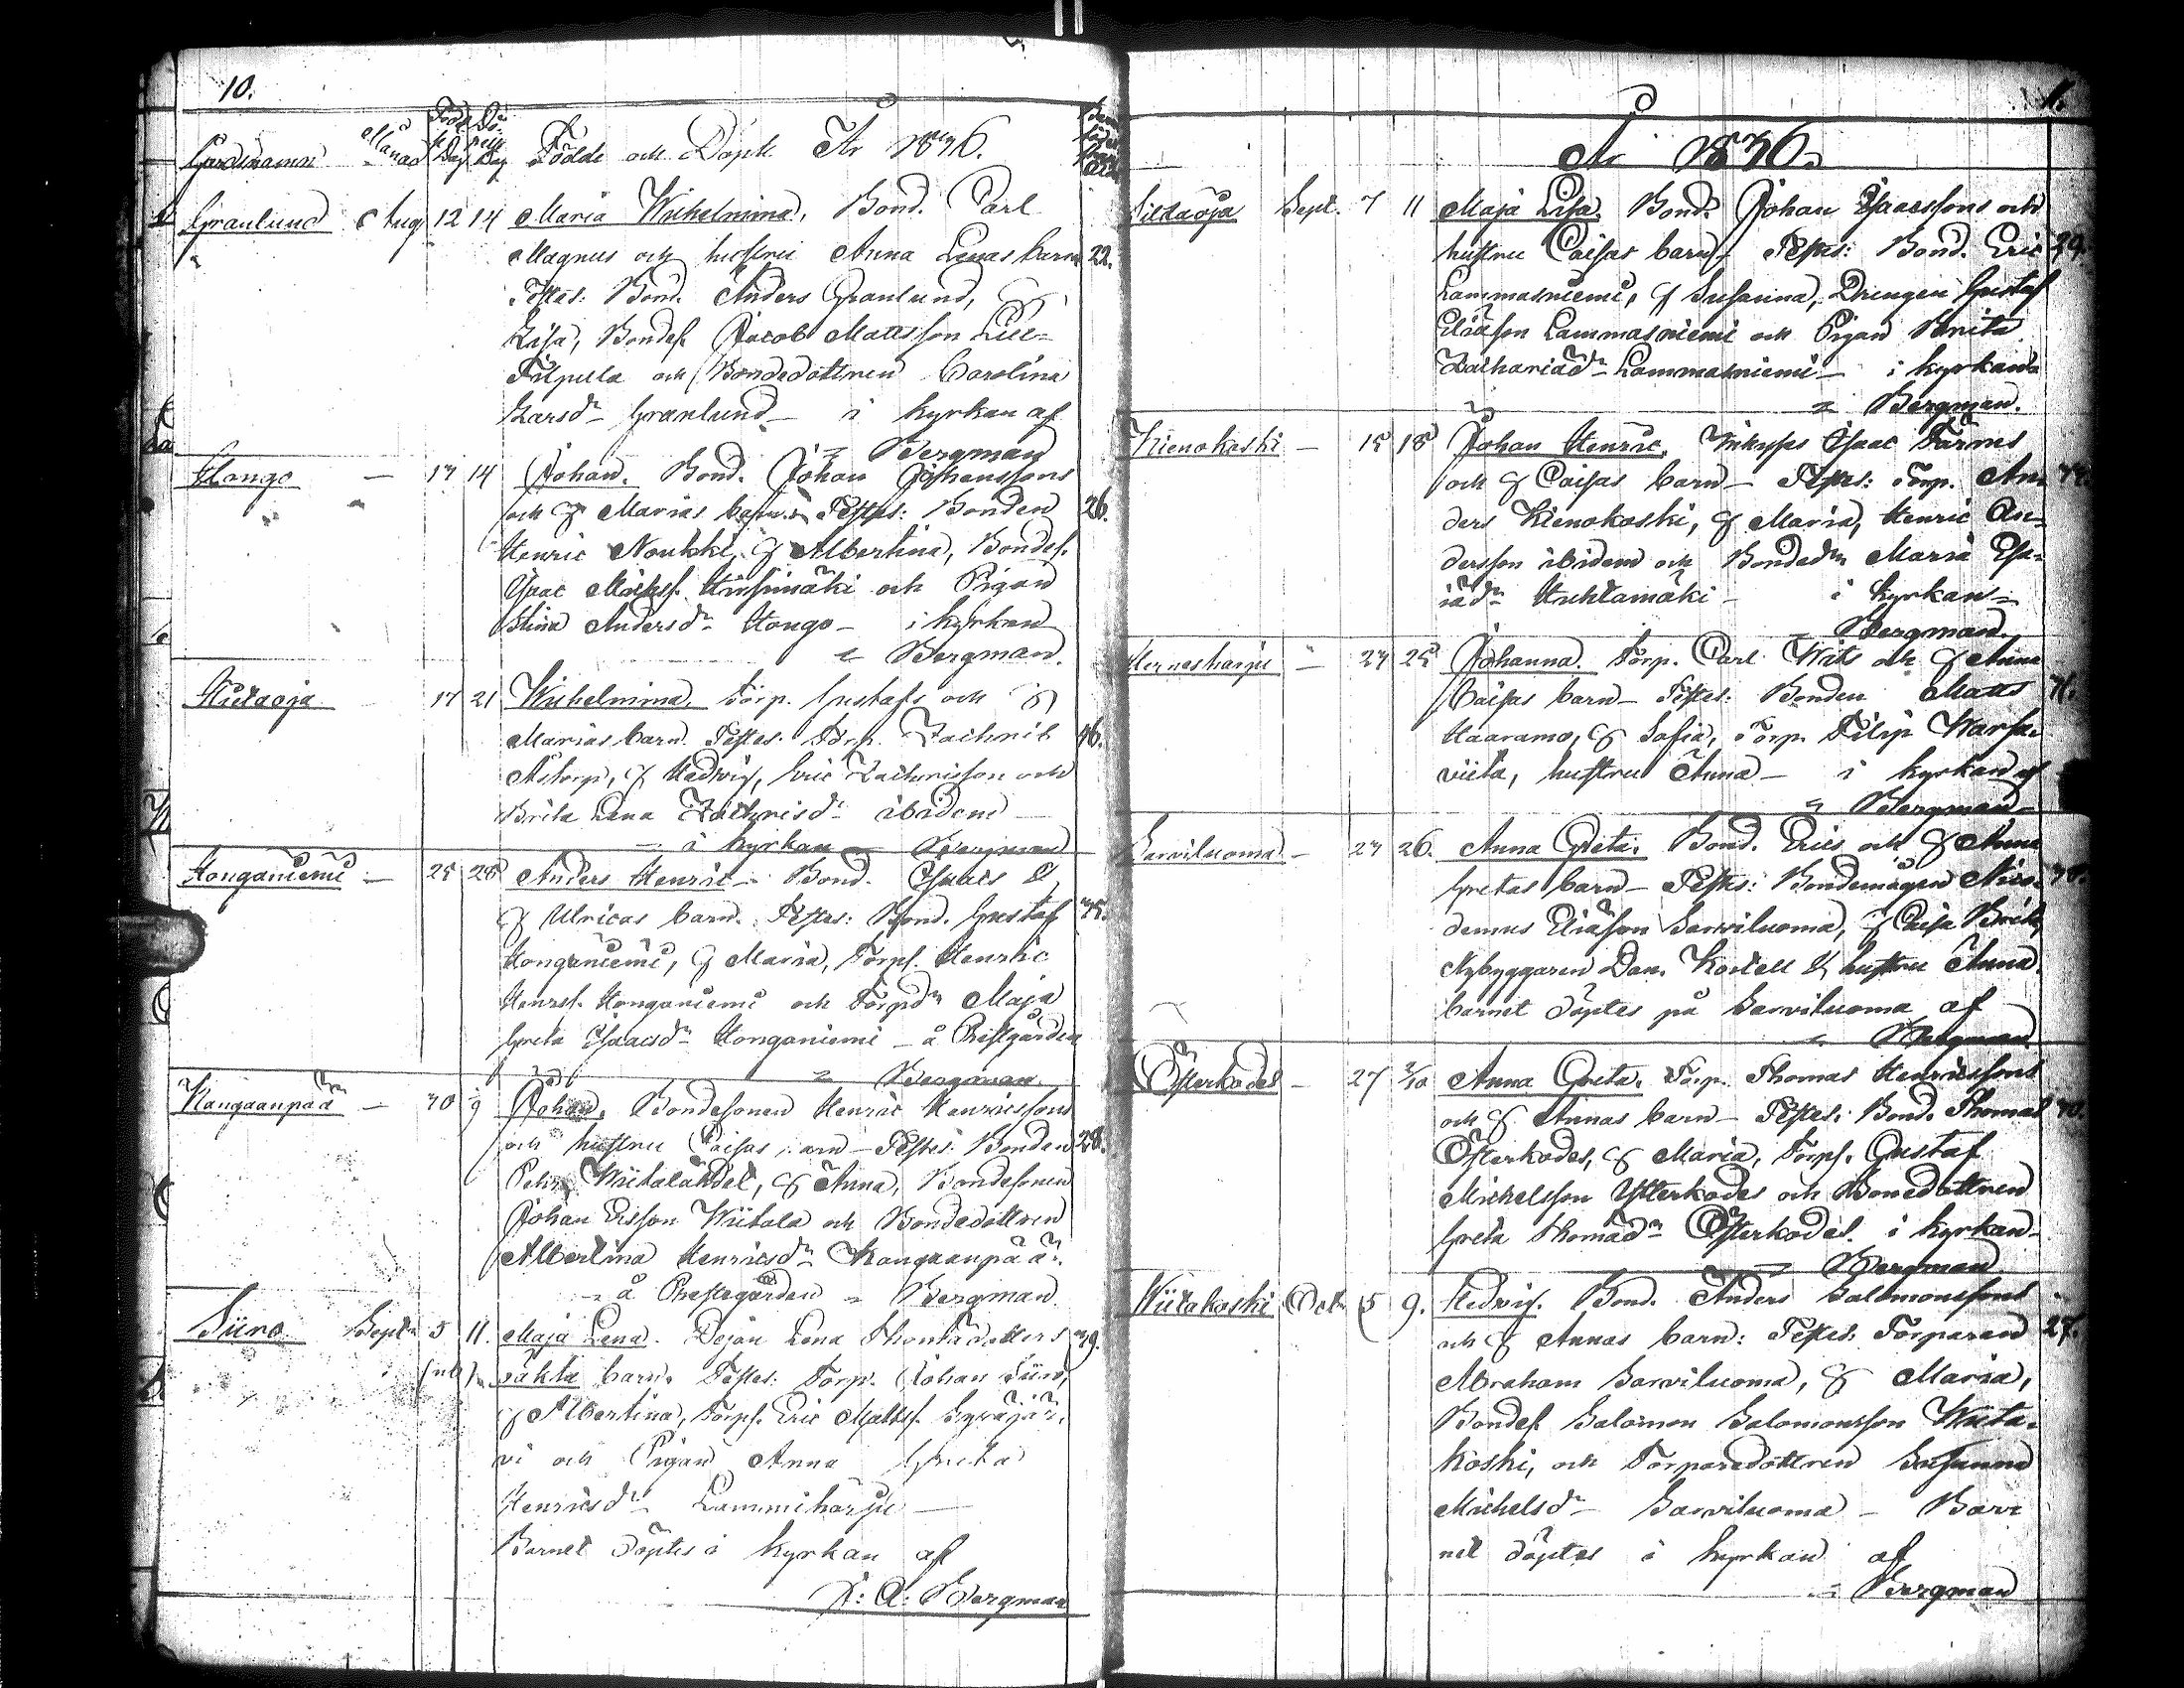 10.
Gårdsnamn Månad Födelse Dag Dag Födde och Döpte År 1836.
Granlund Aug 12 14 Maria Wilhelmina, Bond. Carl
Magnus och hustru Anna Lenas barn 22.
Testes: Bond. Anders Granlund,
Lisa, Bondes. Jacob Mattsson Lill-
Filpula och Bondedottren Carolina
Larsdr Granlund - i kyrkan af
Bergman
Hongo - 13 14 Johan. Bond. Johan Johanssons
och h Marias barn. Testes: Bonden 26.
Henric Noukki, h Albertina, Bondes.
Isaac Hirsimäki och Pigan
Stina Andersdr Hongo - i kyrkan
Bergman.
Hietaoja 17 21 Wilhelmina. Torp. Gustafs och h
Marias barn. Testes: Torp. Zachris 46.
Åstorp, h Hedvig, Eric Zachrisson och
Brita Lena Zachrisdr ibidem -
i kyrkan - Bergman
Honganiemi - 25 28 Anders Henric - Bond. Isaacs &
h Ulricas barn. Testes: Bond. Gustaf 35.
Honganiemi, h Maria, Torps. Henric
Henrss. Honganiemi och Torpdr Maja
Greta Isaacsdr Honganiemi - å Prestgården
Bergman
Kangaanpää - 30 Johan, Bondesonen Henric Henricssons
och hustru Caisas barn - Testes: Bonden 28.
Petr Wiitalähdet, h Anna, Bondesonen
Johan Ersson Wiitala och Bondedottren
Albertina Henricsdr Kangaanpää.
å Prestegården - Bergman
Siiro Sept. 5 11. Maja Lena. Pejan Lena Thomædotters 39.
oäkta barn. Testes: Torp. Johan Siiro,
h Albertina, Torps. Eric Mattss. Jyräjär-
vi och Pigan Anna Greta
Henricsdr Lammiharju -
Barnet döptes i kyrkan af
Bergman
År 1836.
Sildaoja Sept. 7 11 Maja Lisa. Bond. Johan Isaacssons och
hustru Caisas barn - Testes: Bond. Eric 29.
Lammasniemi, h Susanna, Drengen Gustaf
Eliasson Lammasniemi och Pigan Brita
Zachariædr Lammasniemi - i kyrkan
Bergman.
Kienokoski - 15 18 Johan Henric, Inhyses Isaac Färms
och h Caisas barn - Testes: Torp. An-
ders Kienokoski, h Maria, Henric An-
dersson ibidem och Bondedn Maria Esa-
iædr Huhtamäki - i kyrkan
Bergman.
Hernesharju - 23 25 Johanna. Torp. Carl Wiik och h Anna
Caisas barn - Testes: Bonden Matts 31.
Haaramo, h Sofia, Torp. Filip Warsa-
viita, hustru Anna - i kyrkan af
Bergman
Sarviluoma - 23 26. Anna Greta. Bond. Erics och h Anna
Gretas barn - Testes: Bondemågen Nico-
demus Eliasson Sarviluoma, h Caisa Brita,
Nybyggaren Dan. Kortell & hustru Anna.
barnet döptes på Sarviluoma af
Bergman
Österkodes - 27 2/10 Anna Greta. Torp. Thomas Henricssons
och h Annas barn - Testes: Bond. Thomas
Österkodes, h Maria, Torps. Gustaf
Michelsson Ytterkodes och Bonedottren
Greta Thomædr Österkodes. i kyrkan
Bergman
Wiitakoski Oct. 5 9. Hedvig. Bond. Anders Salomonssons
och h Annas barn: Testes: Torparen 27.
Abraham Sarviluoma, h Maria,
Bondes. Salomon Salomonsson Wiita-
koski, och Torparedottren Susanna
Michelsdr Sarviluoma - Bar-
net döptes i kyrkan af
Bergman